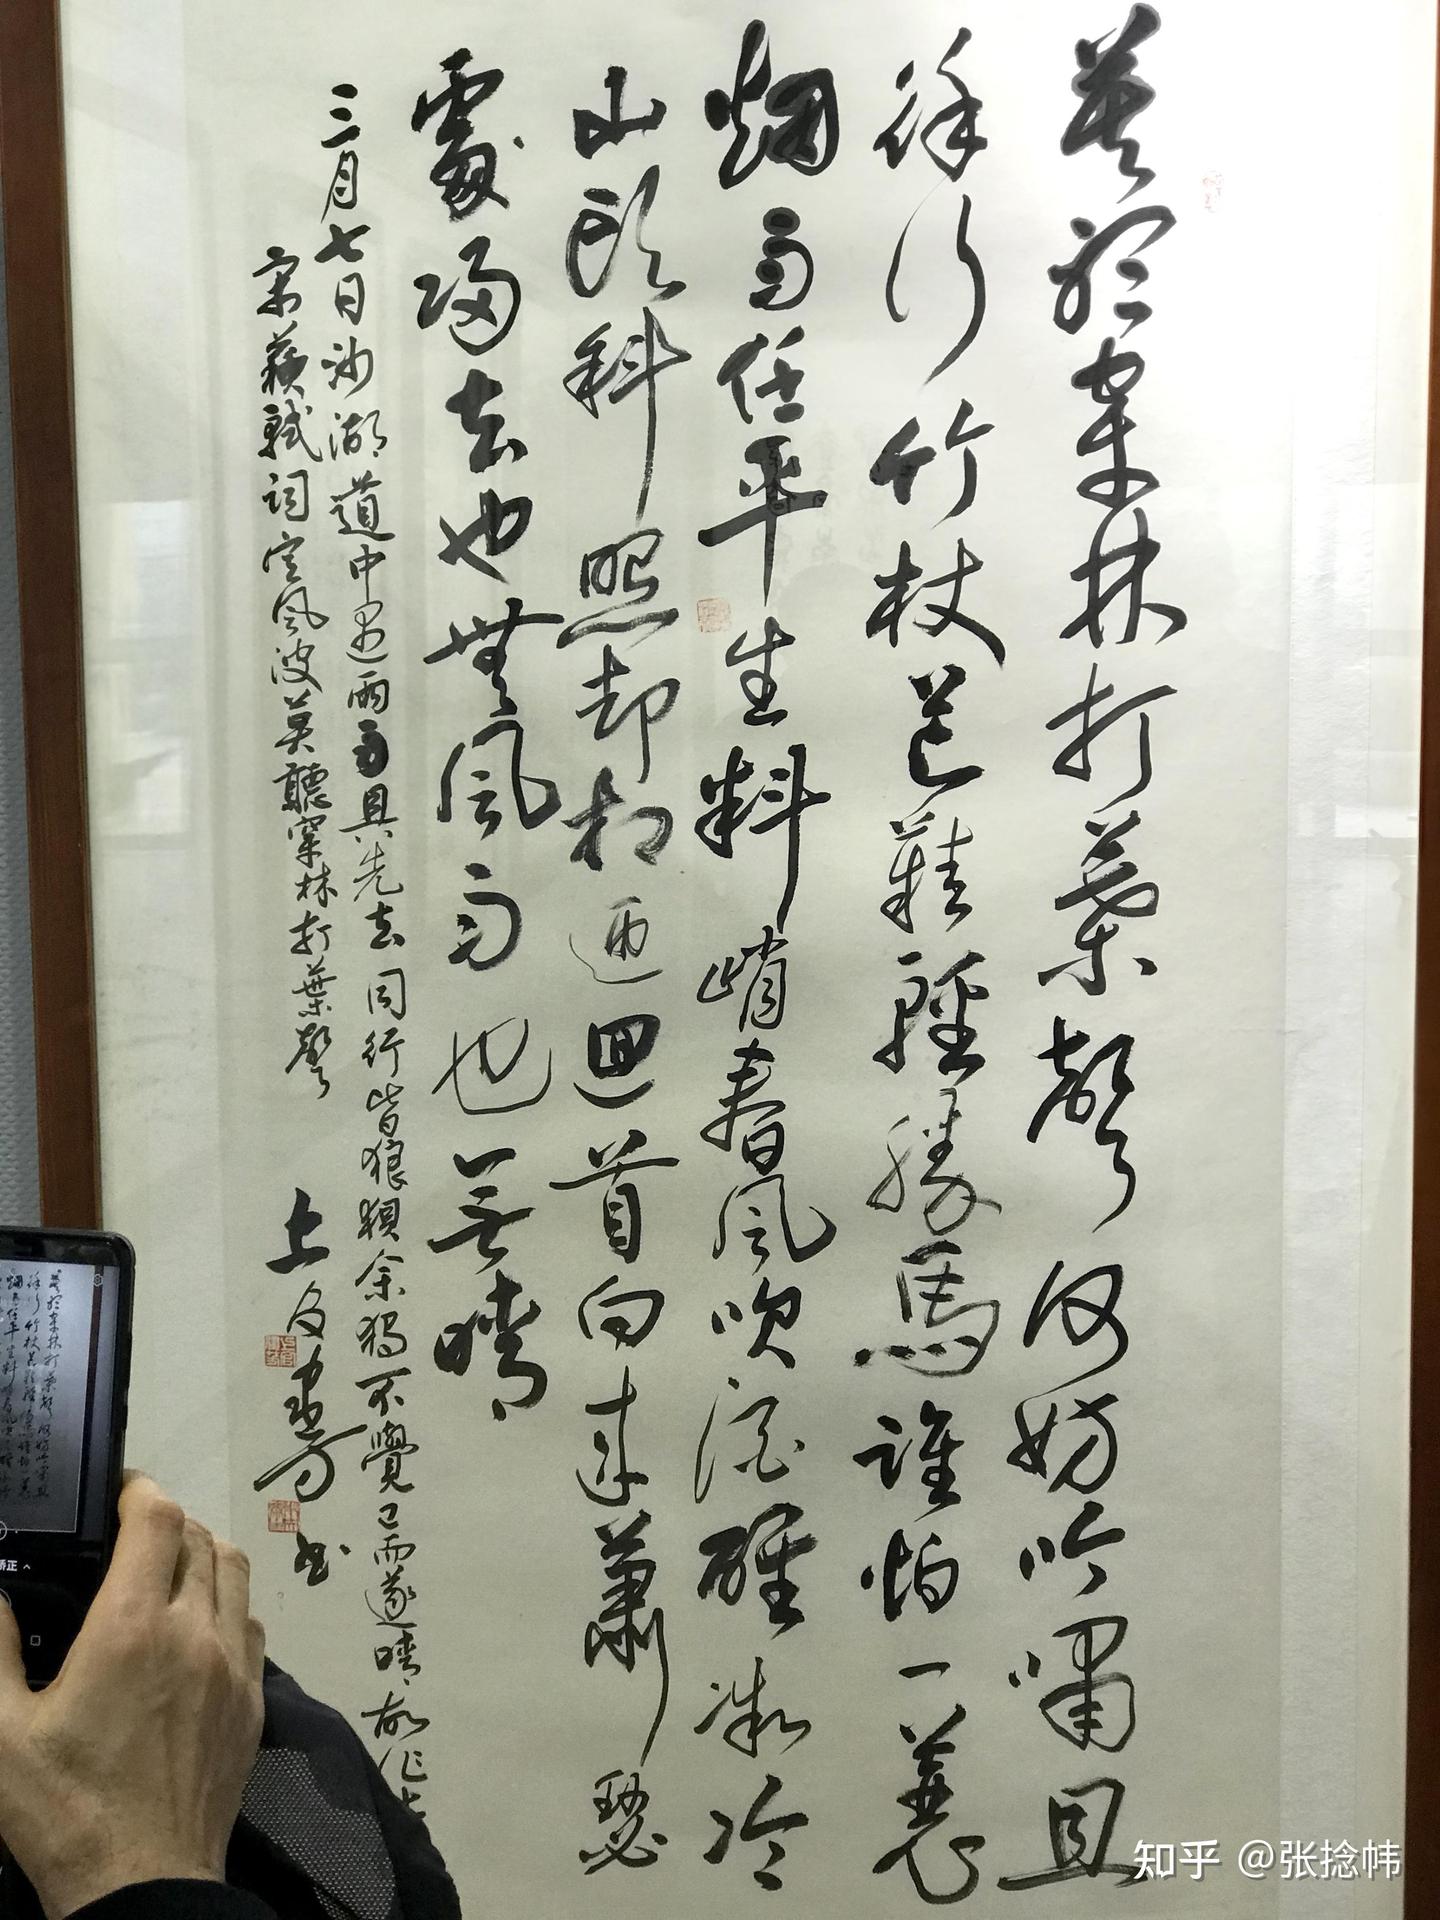 莫聽穿林打葉聲何妨吟嘯且
徐行竹杖芒鞋輕勝馬誰怕一蓑
烟雨任平生料峭春風吹酒醒微冷
山頭斜照却相迎回首向來蕭瑟
處歸去也無風雨也無晴
三月七日沙湖道中遇雨雨具先去同行皆狼狽余獨不覺已而遂晴故作此
宋蘇軾詞定風波莫聽穿林打葉聲
知乎 @张捻帏